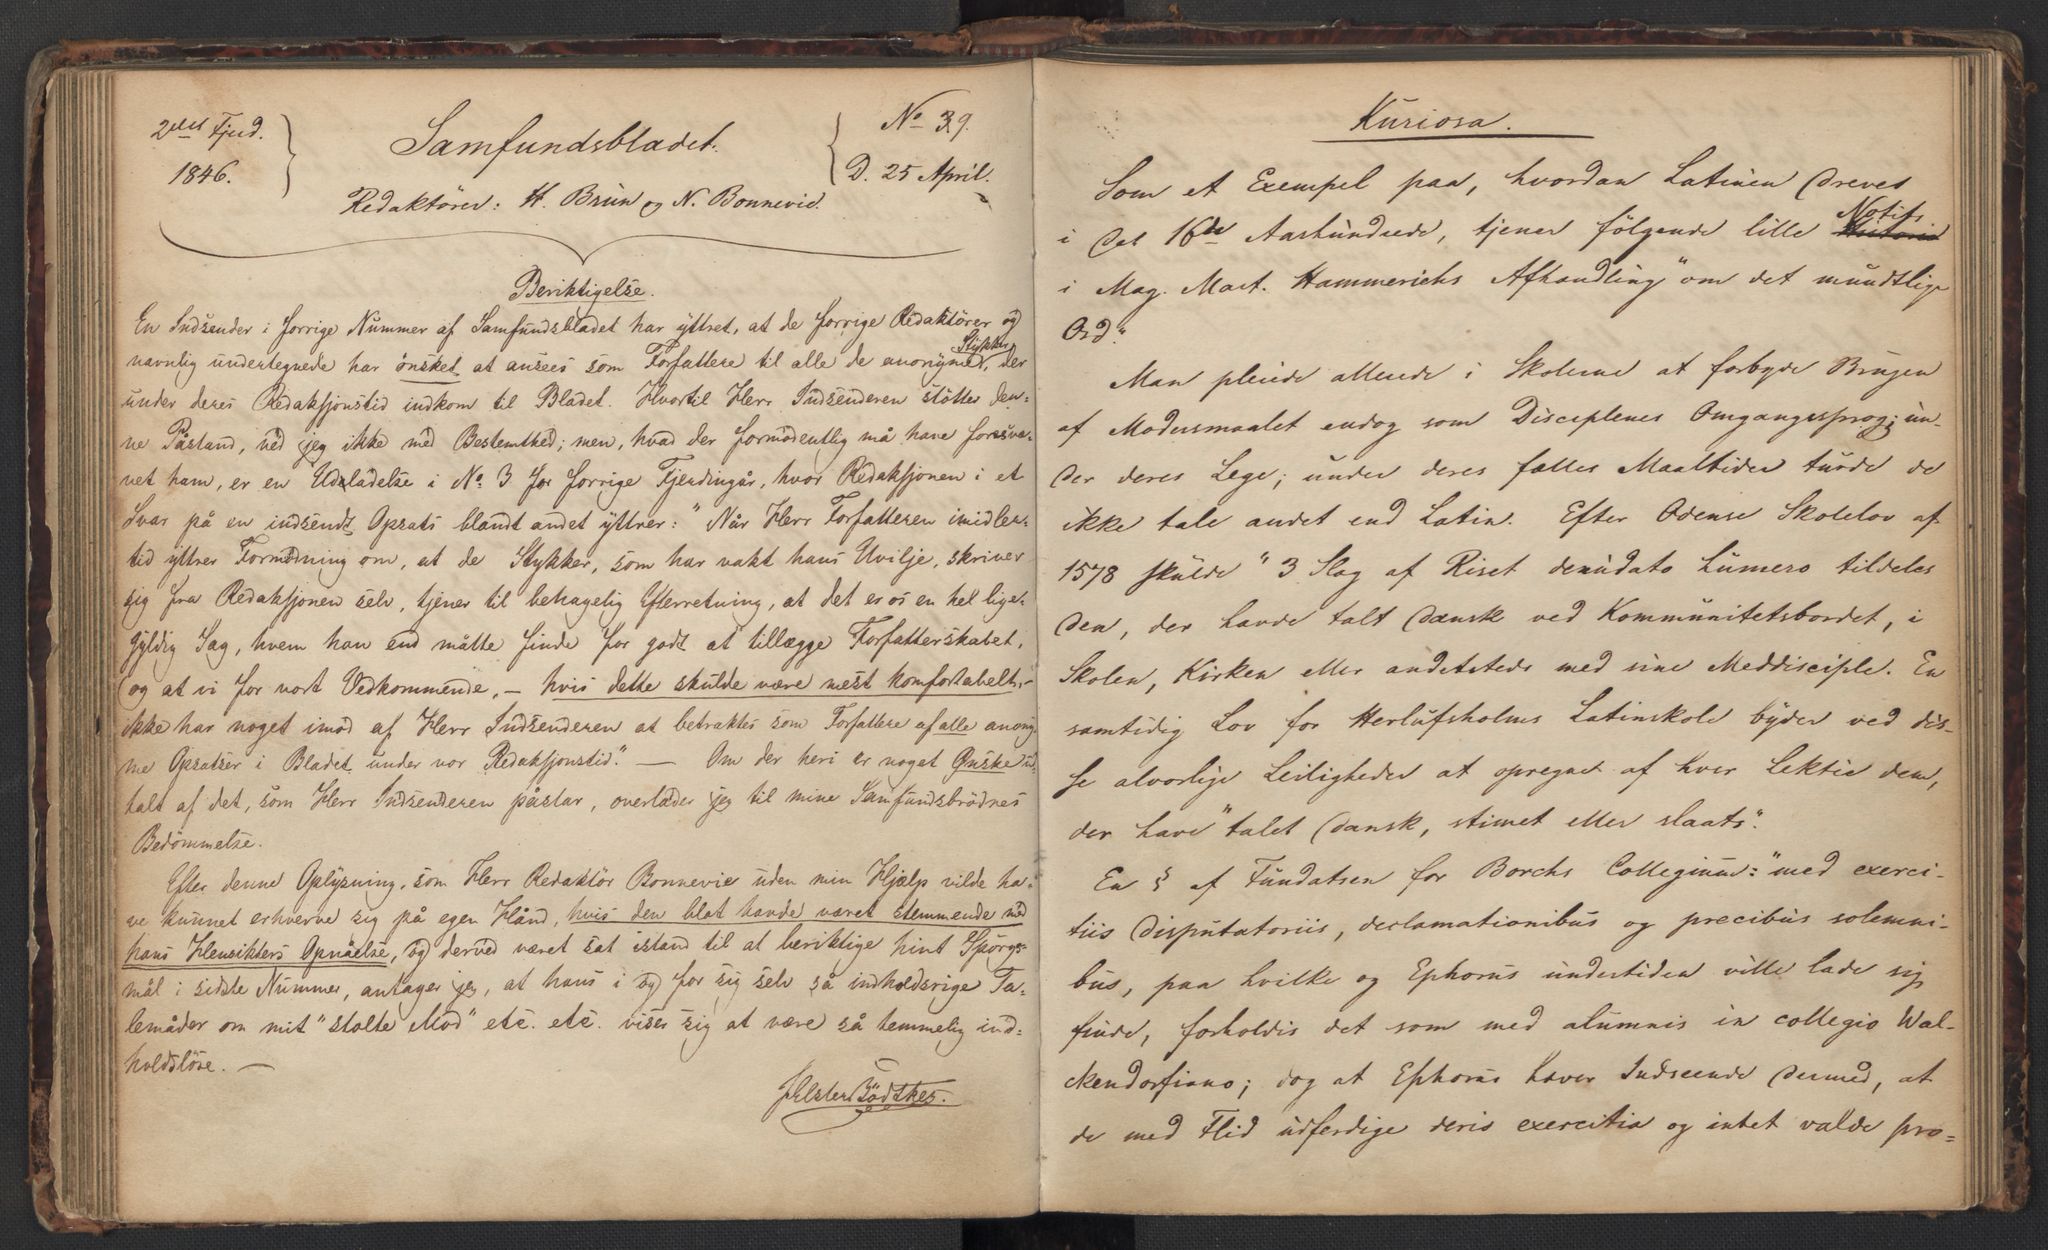 2det Fjud.
1846.
Samfundsbladet.
No 39.
D. 25 April.
Redaktörer: H. Brun og N. Bonnevie.
Beriktigelse.
En Indsender i forrige Nummer af Samfundsbladet har yttret, at de forrige Redaktörer og
navnlig undertegnede har önsket at anses som Forfattere til alle de anonyme Stykker, der
under deres Redaksjonstid indkom til Bladet. Hvortil Herr Indsenderen stötter den-
ne Påstand, véd jeg ikke méd Bestemthed; men, hvad der formodentlig må have foresvæ-
vet ham, er en Udladelse i No. 3 for forrige Fjerdingår, hvor Redaksjonen i et
Svar på en indsendt Opsats blandt andet yttrer: "Når Herr Forfatteren imidler-
tid yttrer Formodning om, at de Stykker, som har vakt hans Uvilje, skriver
sig fra Redaksjonen selv, tjener til behagelig Efterretning, at det er os en hel lige-
gyldig Sag, hvem han end måtte finde for godt at tillægge Forfatterskabet,
og at vi for vort Vedkommende, — hvis dette skulde være mest komfortabelt, —
ikke har noget imod af Herr Indsenderen at betraktes som Forfattere af alle anony-
me Opsatser i Bladet under vor Redaksjonstid." — Om der heri er noget Önske ud-
talt af det, som Herr Indsenderen påstar, overlader jeg til mine Samfundsbrödres
Bedömmelse.
Efter denne Oplysning, som Herr Redaktör Bonnevie uden min Hjælp vilde ha-
ve kunnet erhverve sig på egen Hånd, hvis den blot havde været stemmende méd
hans Hensikters Opnåelse, og derved været sat istand til at beriktige hint Spörgs-
mål i sidste Nummer, antager jeg, at hans i og for sig selv så indholdsrige Ta-
lemåder om mit "stolte Mod" etc. etc. viser sig at være så temmelig ind-
holdslöse. —
Elster Bödtker.
Kuriosa.
Som et Exempel paa, hvordan Latinen dreves
i det 16de Aarhundrede, tjener fölgende lille Notits
i Mag. Mart. Hammerichs Afhandling "om det mundtlige
Ord".
Man pleiede allerede i Skolerne at forbyde Brugen
af Modersmaalet endog som Disciplenes Omgangssprog; un-
der deres Lege; under deres fælles Maaltider turde de
ikke tale andet end Latin. Efter Odense Skolelov af
1578 skulde "3 Slag af Riset denudato Lumero tildeles
den, der havde talt dansk ved Kommunitetsbordet, i
Skolen, Kirken eller andetsteds med sine Meddisciple. En
samtidig Lov for Herlufsholms Latinskole byder ved dis-
se alvorlige Leiligheder at opregne af hver Lektie dem,
der have "talet dansk, stimet eller slaats".
En § af Fundatsen for Borchs Collegium: "med exerci-
tiis disputatoriis, declamationibus og precibus solemni-
bus, paa hvilke og Ephorus undertiden ville lade sig
finde, forholdis det som med alumnis in collegio Wal-
ckendorfiano; dog at Ephorus haver Indseende dermed, at
de med Flid udferdige deris exercitia og intet valde pro-